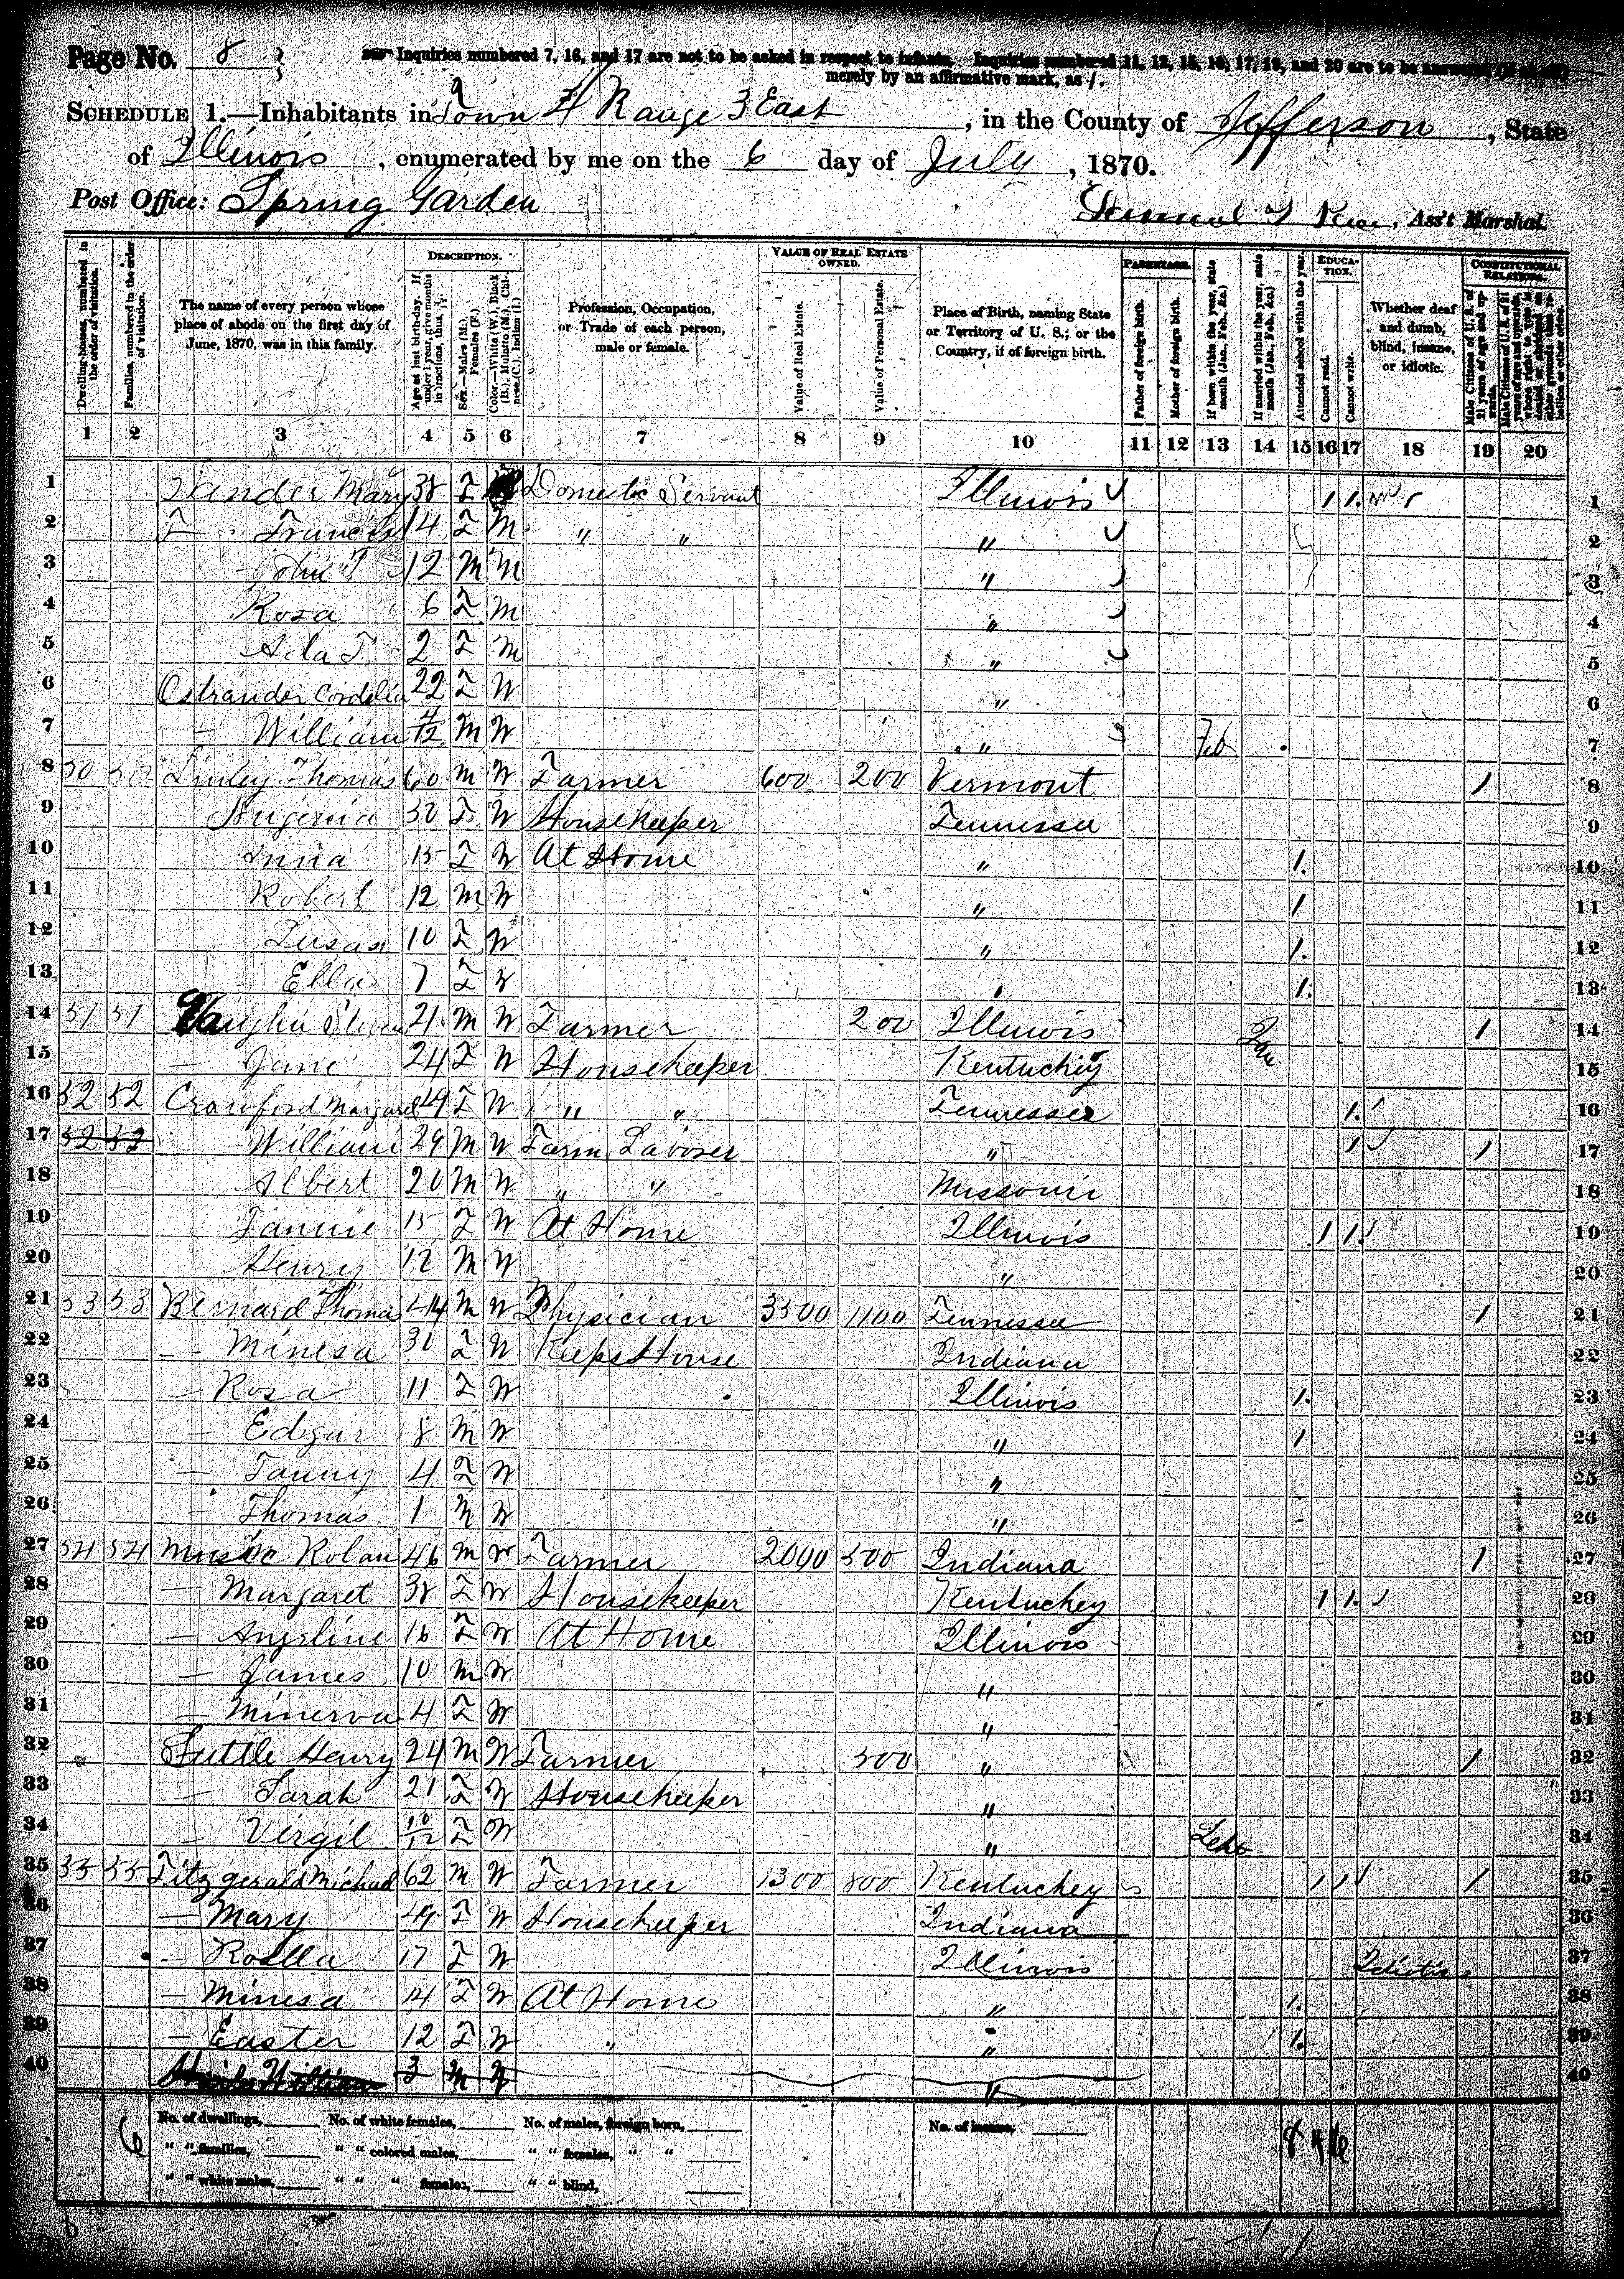 Page No. 8
Inquiries numbered 7, 16, and 17 are not to be asked in respect to infants. Inquiries numbered 11, 12, 15, 16, 17, 19, and 20 are to be answered
merely by an affirmative mark, as /.
SCHEDULE 1.—Inhabitants in Town 4 Range 3 East, in the County of Jefferson, State
of Illinois, enumerated by me on the 6 day of July, 1870.
Post Office: Spring Garden
Ass't Marshal.
Dwelling-houses, numbered in the order of visitation.
Families, numbered in the order of visitation.
The name of every person whose place of abode on the first day of June, 1870, was in this family.
DESCRIPTION.
Age at last birth-day. If under 1 year, give months in fractions, thus,
Sex.—Males (M.), Females (F.)
Color.—White (W.), Black (B.), Mulatto (M.), Chinese (C.), Indian (I.)
Profession, Occupation, or Trade of each person, male or female.
VALUE OF REAL ESTATE OWNED.
Value of Real Estate.
Value of Personal Estate.
Place of Birth, naming State or Territory of U. S.; or the Country, if of foreign birth.
PARENTAGE.
Father of foreign birth.
Mother of foreign birth.
If born within the year, state month (Jan., Feb., &c.)
If married within the year, state month (Jan., Feb., &c.)
Attended school within the year.
EDUCATION.
Cannot read.
Cannot write.
Whether deaf and dumb, blind, insane, or idiotic.
CONSTITUTIONAL RELATIONS.
Male Citizens of U. S. of 21 years of age and upwards.
1 2 3 4 5 6 7 8 9 10 11 12 13 14 15 16 17 18 19 20
1 Mary 38 F Domestic Servant Illinois / / 1
2 Francis 14 F M " " " 2
3 John T 12 M M " 3
4 Rosa 6 F M " 4
5 Ada 2 F M " 5
6 Ostrander Cordelia 22 F W " 6
7 — William 4/12 M W " Feb 7
8 50 50 Thomas 60 M W Farmer 600 200 Vermont / 8
9 50 F W Housekeeper Tennessee 9
10 Anna 15 F W At Home " / 10
11 Robert 12 M W " / 11
12 Susan 10 F W " / 12
13 Ella 7 F W " / 13
14 51 51 Vaughn 21 M W Farmer 200 Illinois Jan / 14
15 — Jane 24 F W Housekeeper Kentuckey 15
16 52 52 Crawford Margaret 49 F W " " Tennessee / 16
17 52 52 William 29 M W Farm Laborer " / / 17
18 Albert 20 M W " " Missouri 18
19 Fannie 15 F W At Home Illinois / / 19
20 Henry 12 M W " 20
21 53 53 Bernard Thomas 44 M W Physician 3500 1100 Tennessee / 21
22 — Minesa 30 F W Keeps House Indiana 22
23 — Rosa 11 F W Illinois / 23
24 — Edgar 8 M W " / 24
25 — Fanny 4 F W " 25
26 — Thomas 1 M W " 26
27 54 54 Music Rolan 46 M W Farmer 2000 500 Indiana / 27
28 — Margaret 38 F W Housekeeper Kentuckey / / 28
29 — Angeline 16 F W At Home Illinois 29
30 — James 10 M W " 30
31 — Minerva 4 F W " 31
32 Suttle Henry 24 M W Farmer 500 " / 32
33 — Sarah 21 F W Housekeeper " 33
34 — Virgil 10/12 F W " 34
35 55 55 Fitzgerald Michael 62 M W Farmer 1300 800 Kentuckey / / / 35
36 — Mary 49 F W Housekeeper Indiana 36
37 — Roella 17 F W Illinois Idiotic 37
38 — Minesa 14 F W At Home " / 38
39 — Easter 12 F W " " / 39
40 William 3 M W " 40
No. of dwellings, No. of white females, No. of males, foreign born, No. of insane,
6 " " families, " " colored males, " " females, " " 8 4 6
" " white males, " " " females, " " blind,